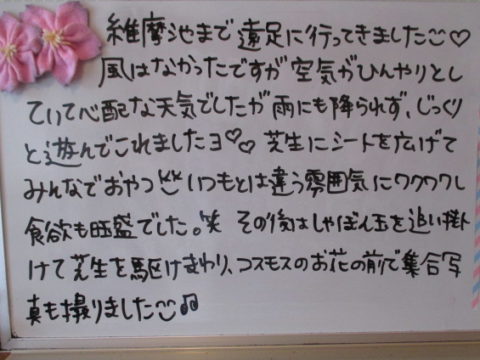 維摩池まで遠足に行ってきました♡
風はなかったですが空気がひんやりとし
ていて心配な天気でしたが雨にも降られず、じっくり
と遊んでこれましたヨ♡♡ 芝生にシートを広げて
みんなでおやつ いつもとは違う雰囲気にワクワクし
食欲も旺盛でした。笑 その後はしゃぼん玉を追い掛
けて芝生を駆けまわり、コスモスのお花の前で集合写
真も撮りました♫